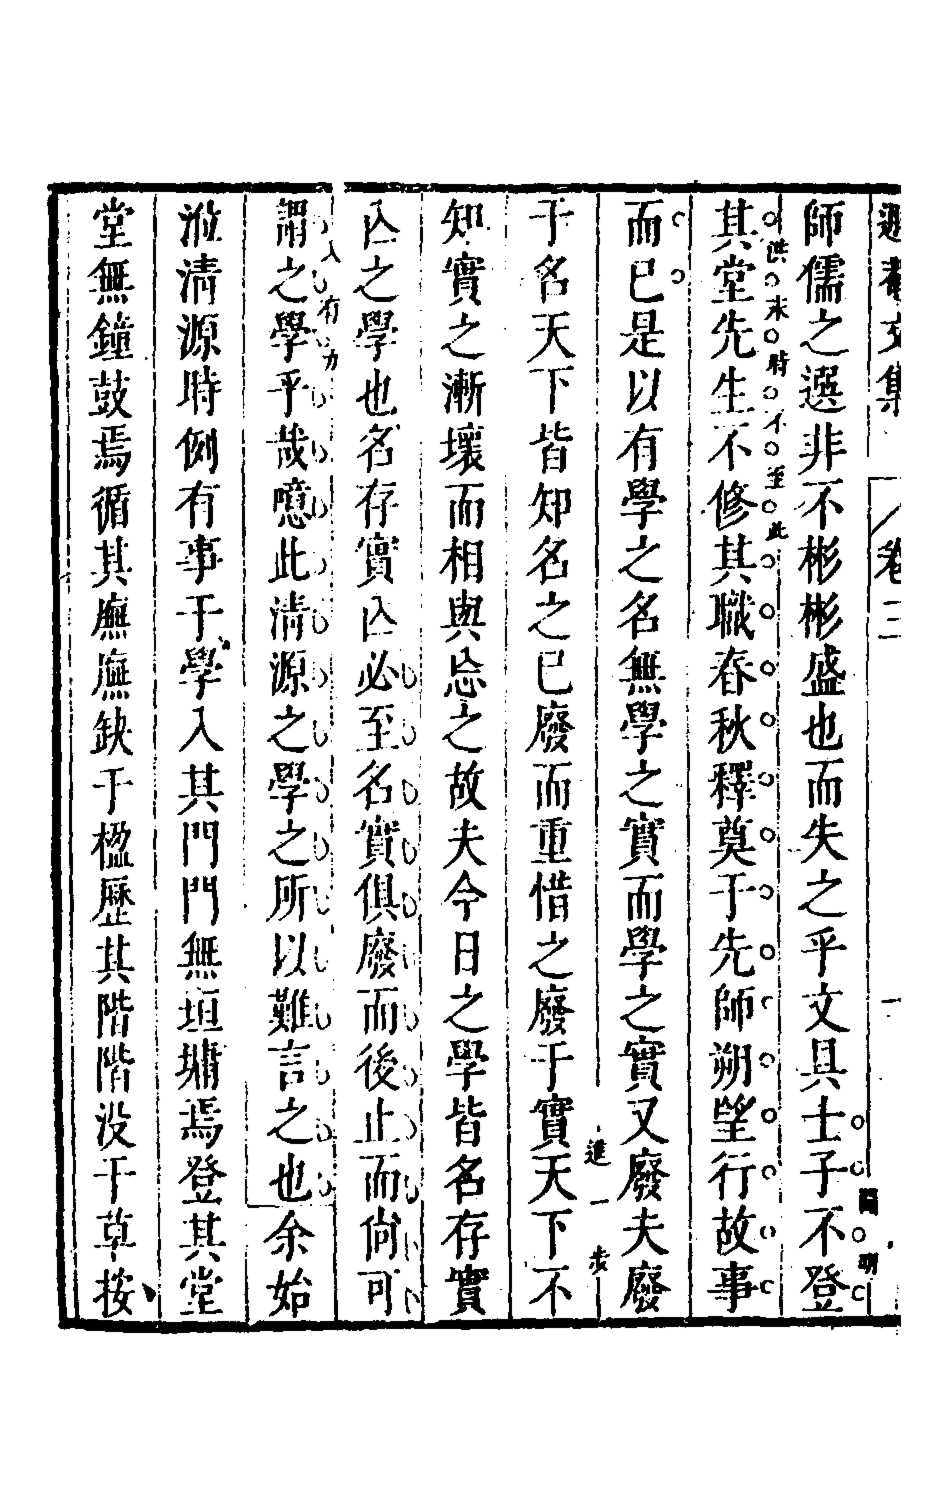 遜菴文集 卷三
師儒之選非不彬彬盛也而失之乎文具士子不登
開明
其堂先生不修其職春秋釋奠于先師朔望行故事
洪末時不至此
而已是以有學之名無學之實而學之實又廢夫廢
于名天下皆知名之已廢而重惜之廢于實天下不
進一步
知實之漸壞而相與忘之故夫今日之學皆名存實
亾之學也名存實亾必至名實俱廢而後止而尙可
謂之學乎哉噫此清源之學之所以難言之也余始
入有力
涖清源時例有事于學入其門門無垣墉焉登其堂
堂無鐘鼓焉循其廡廡缺于楹歷其階階没于草按